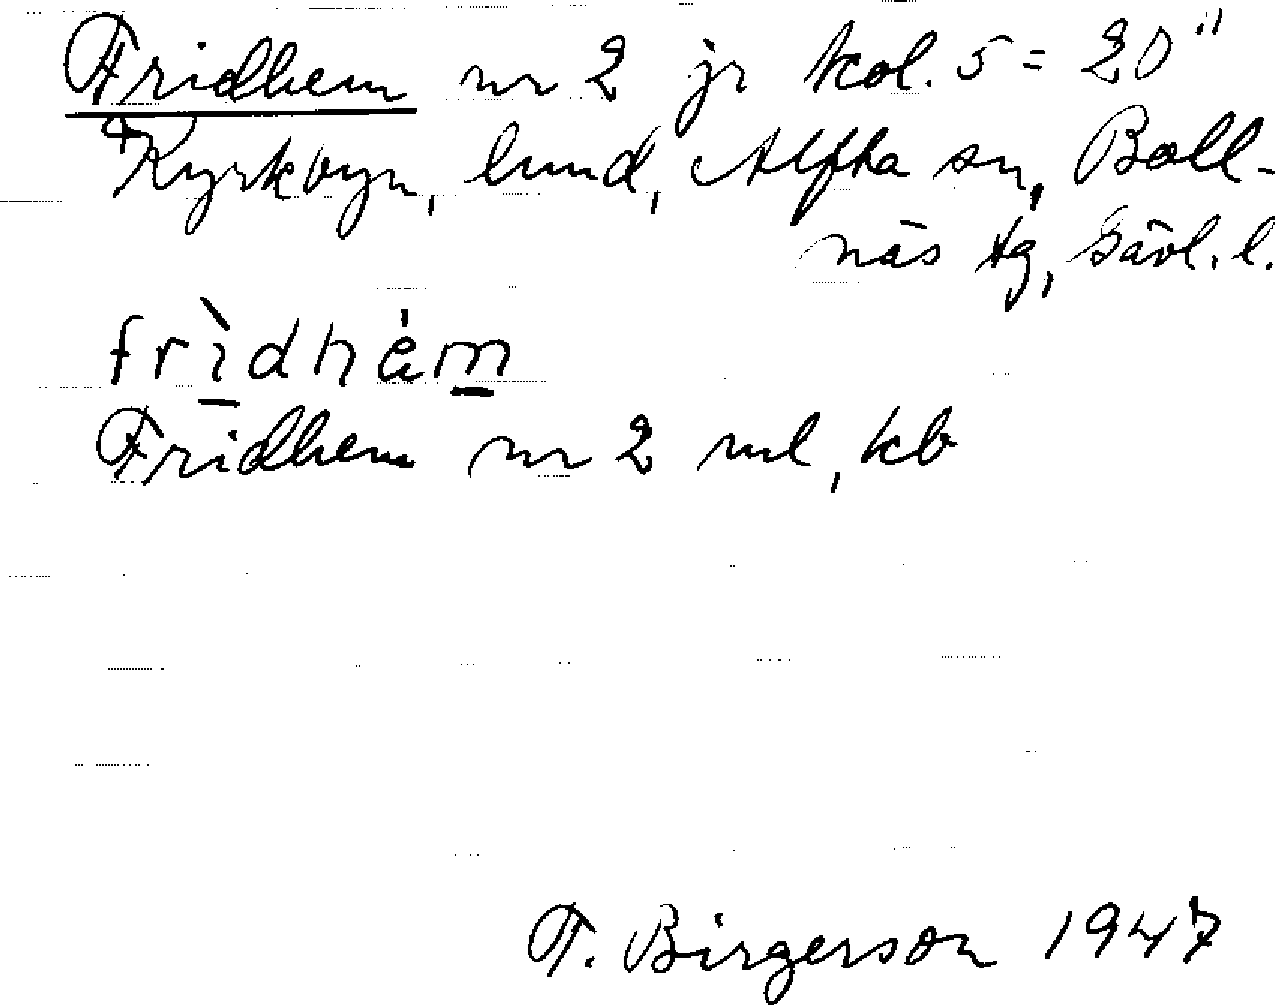 Fridhem nr 2 jr kol. 5 = 20"
Kyrkbyn, lund, Alfta sn, Boll-
näs tg, Gävl. l.
frìdhém
Fridhem nr 2 ml, kb
F. Birgerson 1947